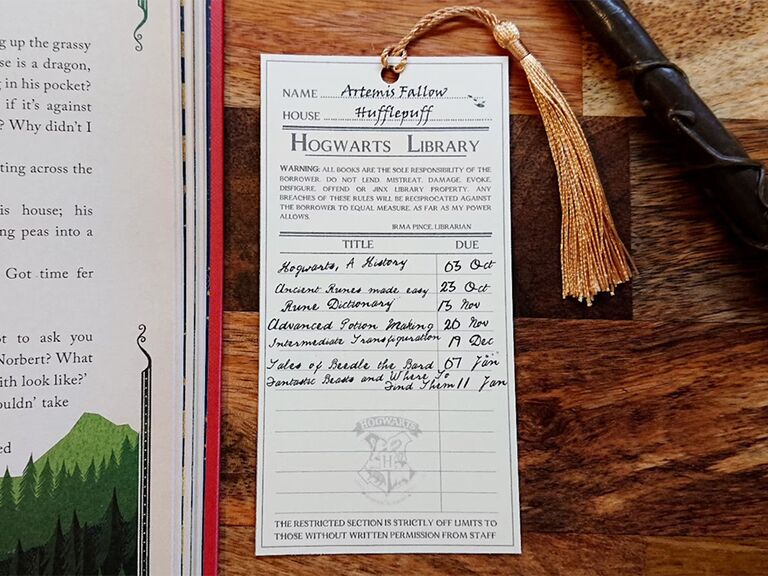 ng up the grassy
se is a dragon,
g in his pocket?
if it's against
? Why didn't I
ting across the
is house; his
ng peas into a
Got time fer
ot to ask you
Norbert? What
ith look like?'
ouldn' take
ed
NAME Artemis Fallow
HOUSE Hufflepuff
HOGWARTS LIBRARY
WARNING: ALL BOOKS ARE THE SOLE RESPONSIBILITY OF THE
BORROWER. DO NOT LEND, MISTREAT, DAMAGE, EVOKE,
DISFIGURE, OFFEND OR JINX LIBRARY PROPERTY. ANY
BREACHES OF THESE RULES WILL BE RECIPROCATED AGAINST
THE BORROWER TO EQUAL MEASURE, AS FAR AS MY POWER
ALLOWS.
IRMA PINCE, LIBRARIAN
TITLE DUE
Hogwarts, A History 03 Oct
Ancient Runes made easy 23 Oct
Rune Dictionary 13 Nov
Advanced Potion Making 20 Nov
Intermediate Transfiguration 19 Dec
Tales of Beedle the Bard 07 Jan
Fantastic Beasts and Where To
Find Them 11 Jan
HOGWARTS
H
THE RESTRICTED SECTION IS STRICTLY OFF LIMITS TO
THOSE WITHOUT WRITTEN PERMISSION FROM STAFF